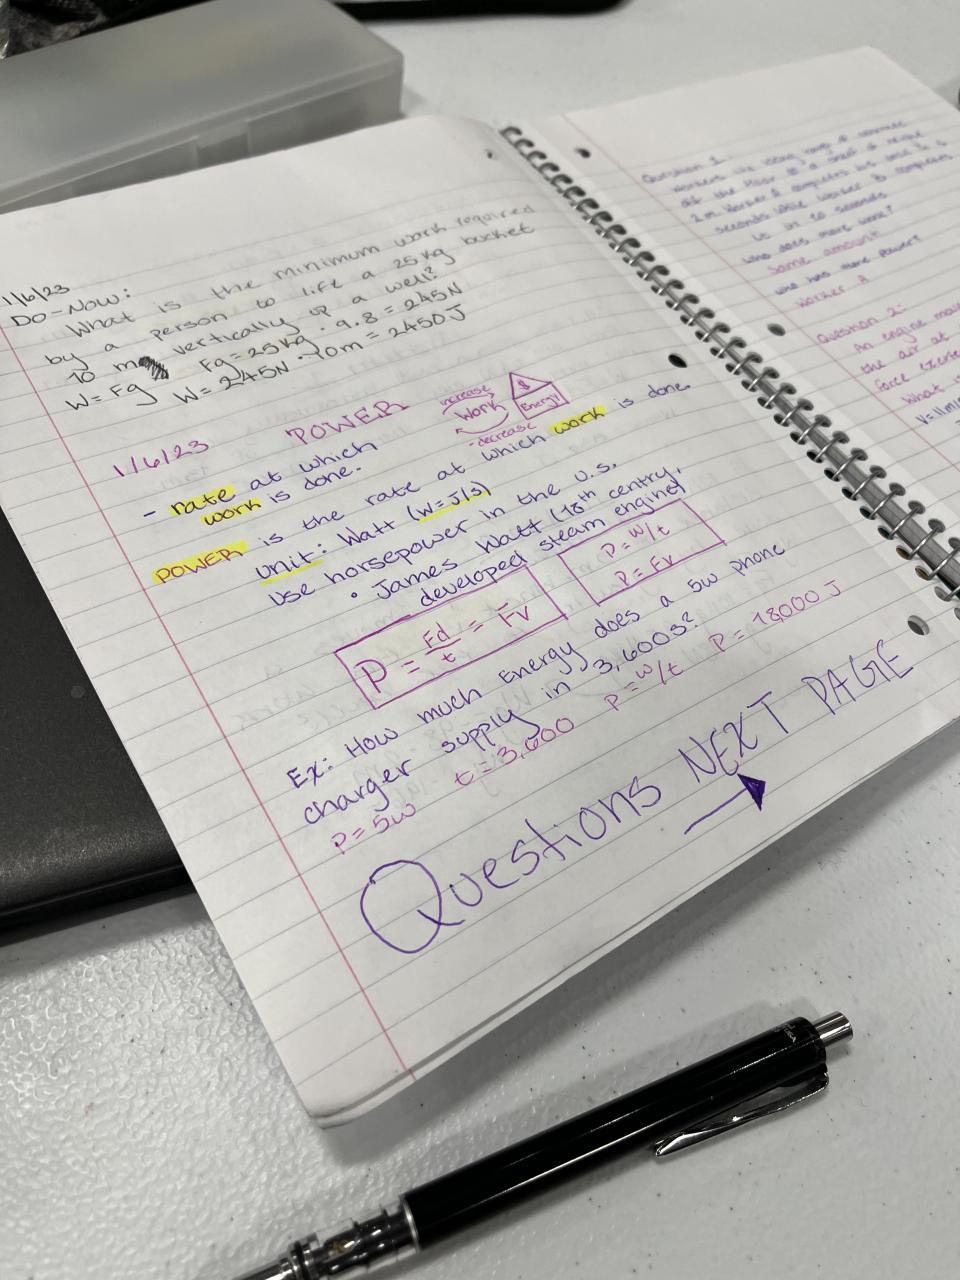 1/6/23
Do-Now:
What is the minimum work required
by a person to life a 25kg bucket
10 m vertically up a well?
W = Fg Fg = 25kg · 9.8 = 245N
W = 245N · 10m = 2450J
1/6/23 POWER
increase
Work
- decrease
$
Energy
- rate at which
work is done.
POWER is the rate at which work is done.
unit: Watt (W=J/s)
use horsepower in the U.S.
• James Watt (18th centry,
developed steam engine)
P = Fd/t = Fv
P = W/t
P = Fv
Ex: How much Energy does a 5w phone
charger supply in 3,600s?
P = 5w t = 3,600 P = W/t P = 18,000 J
Questions NEXT PAGE
Question 1:
Workers
off the floor to a shelf of height
2 m. Worker A completes
seconds while worker B completes
it in 10 seconds
who does more work?
Same amount
who has more power?
Worker A
Question 2:
An engine
the air at
force
What
V=